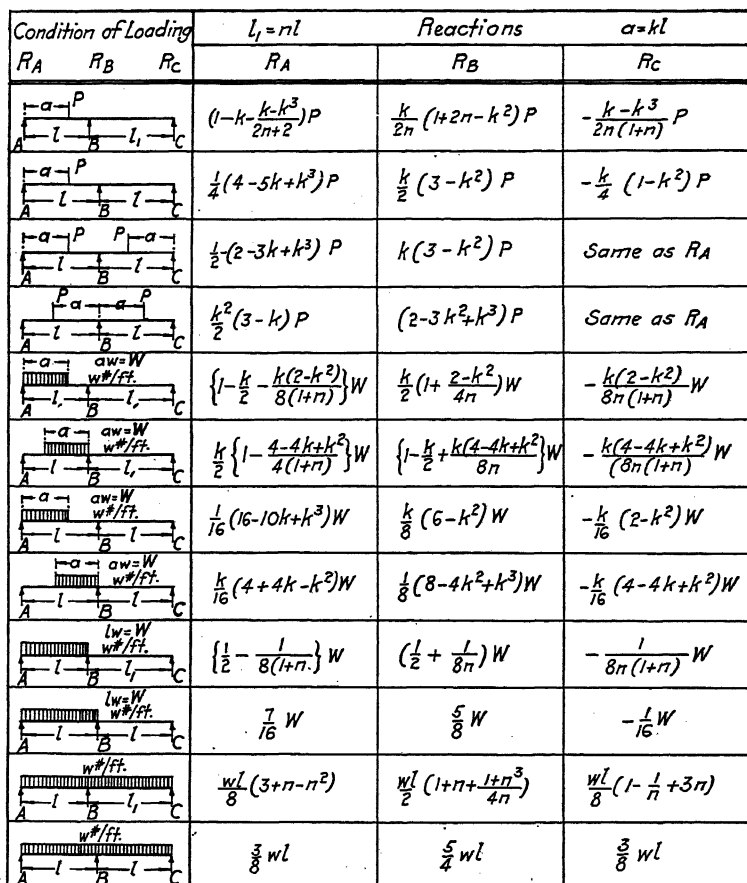 Condition of Loading l₁=nl Reactions a=kl
R_A R_B R_C R_A R_B R_C
a P A l B l₁ C (1-k-\frac{k-k³}{2n+2})P \frac{k}{2n}(1+2n-k²)P -\frac{k-k³}{2n(1+n)}P
a P A l B l C \frac{1}{4}(4-5k+k³)P \frac{k}{2}(3-k²)P -\frac{k}{4}(1-k²)P
a P P a A l B l C \frac{1}{2}-(2-3k+k³)P k(3-k²)P Same as R_A
P a a P A l B l C \frac{k²}{2}(3-k)P (2-3k²+k³)P Same as R_A
a aw=W w#/ft. A l, B l, C {1-\frac{k}{2}-\frac{k(2-k²)}{8(1+n)}}W \frac{k}{2}(1+\frac{2-k²}{4n})W -\frac{k(2-k²)}{8n(1+n)}W
a aw=W w#/ft. A l B l₁ C \frac{k}{2}{1-\frac{4-4k+k²}{4(1+n)}}W {1-\frac{k}{2}+\frac{k(4-4k+k²}{8n}}W -\frac{k(4-4k+k²)}{(8n(1+n)}W
a aw=W w#/ft. A l B l C \frac{1}{16}(16-10k+k³)W \frac{k}{8}(6-k²)W -\frac{k}{16}(2-k²)W
a aw=W w#/ft. A l B l C \frac{k}{16}(4+4k-k²)W \frac{1}{8}(8-4k²+k³)W -\frac{k}{16}(4-4k+k²)W
lw=W w#/ft. A l B l₁ C {\frac{1}{2}-\frac{1}{8(1+n.}}W (\frac{1}{2}+\frac{1}{8n})W -\frac{1}{8n(1+n)}W
lw=W w#/ft. A l B l C \frac{7}{16}W \frac{5}{8}W -\frac{1}{16}W
w#/ft. A l B l₁ C \frac{wl}{8}(3+n-n²) \frac{wl}{2}(1+n+\frac{1+n³}{4n}) \frac{wl}{8}(1-\frac{1}{n}+3n)
w#/ft. A l B l C \frac{3}{8}wl \frac{5}{4}wl \frac{3}{8}wl